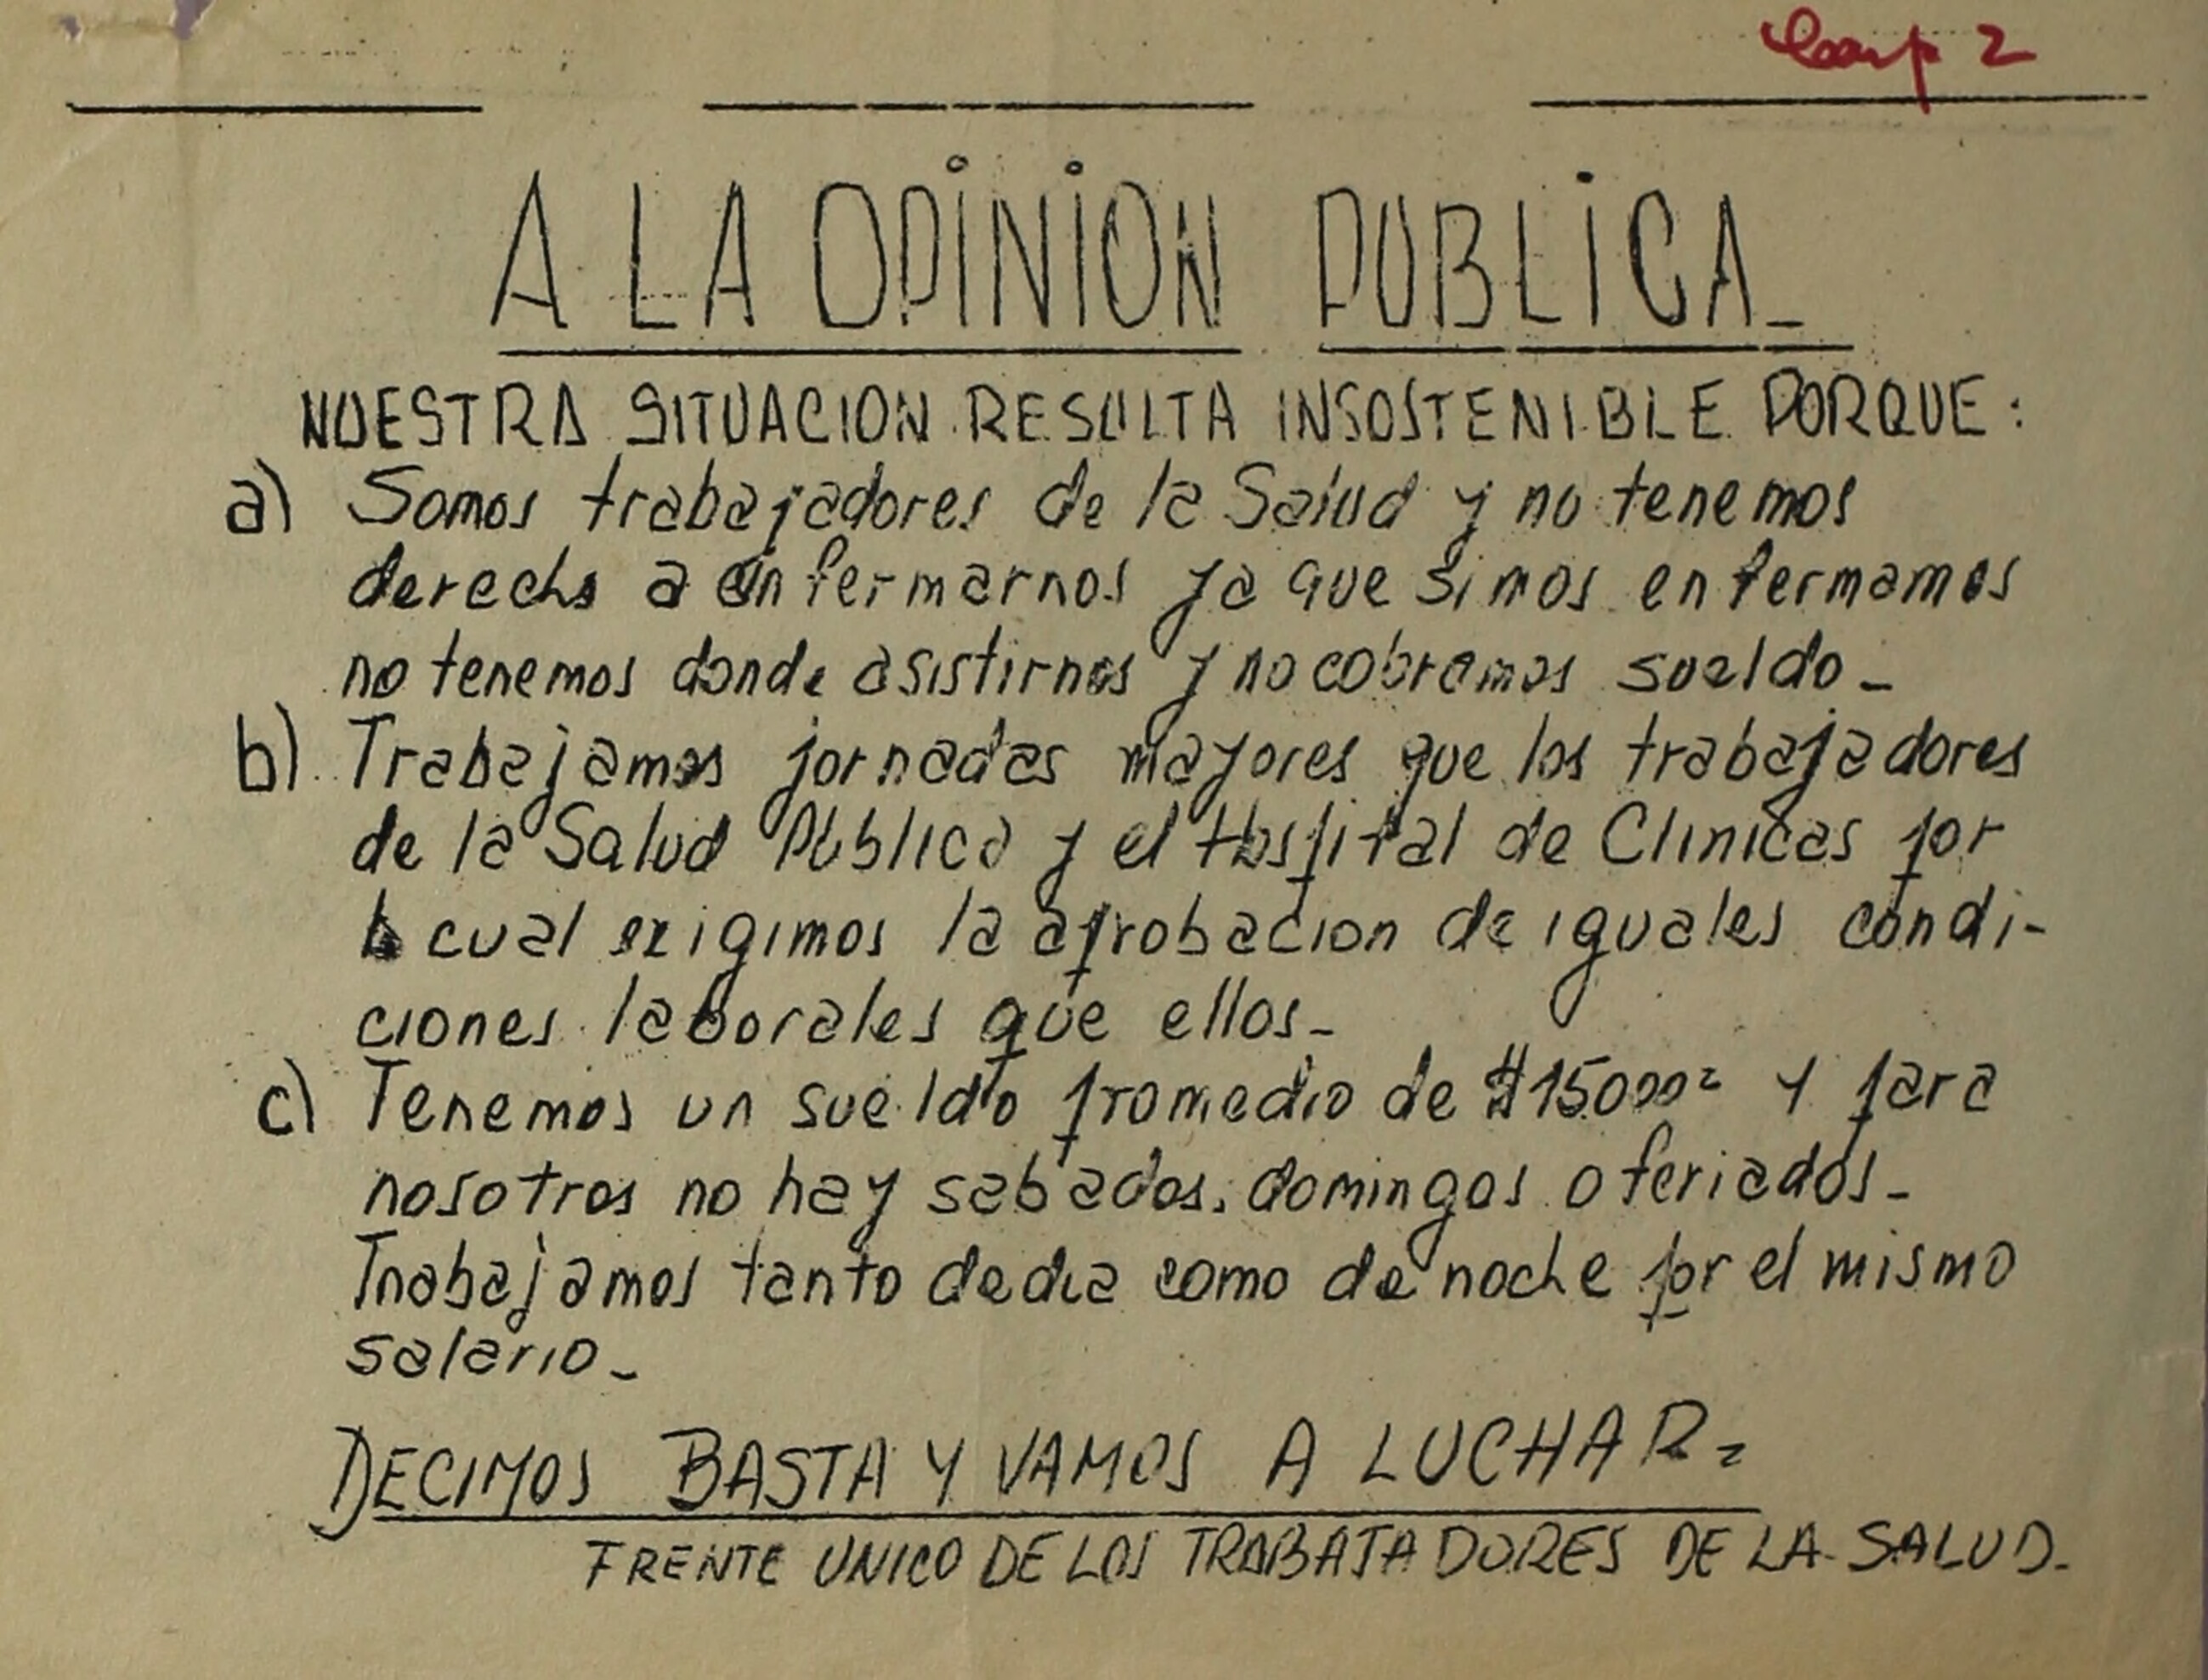 Carp 2
A LA OPINION PUBLICA_
NUESTRA SITUACION RESULTA INSOSTENIBLE PORQUE:
a) Somos trabajadores de la Salud y no tenemos
derecho a enfermarnos ya que si nos enfermamos
no tenemos donde asistirnos y no cobramos sueldo_
b) Trabajamos jornadas mayores que los trabajadores
de la Salud Pública y el Hospital de Clinicas por
lo cual exigimos la aprobacion de iguales condi-
ciones laborales que ellos_
c) Tenemos un sueldo promedio de $15000= y para
nosotros no hay sabados, domingos o feriados_
Trabajamos tanto de dia como de noche por el mismo
salario_
DECIMOS BASTA Y VAMOS A LUCHAR=
FRENTE UNICO DE LOS TRABAJADORES DE LA SALUD_